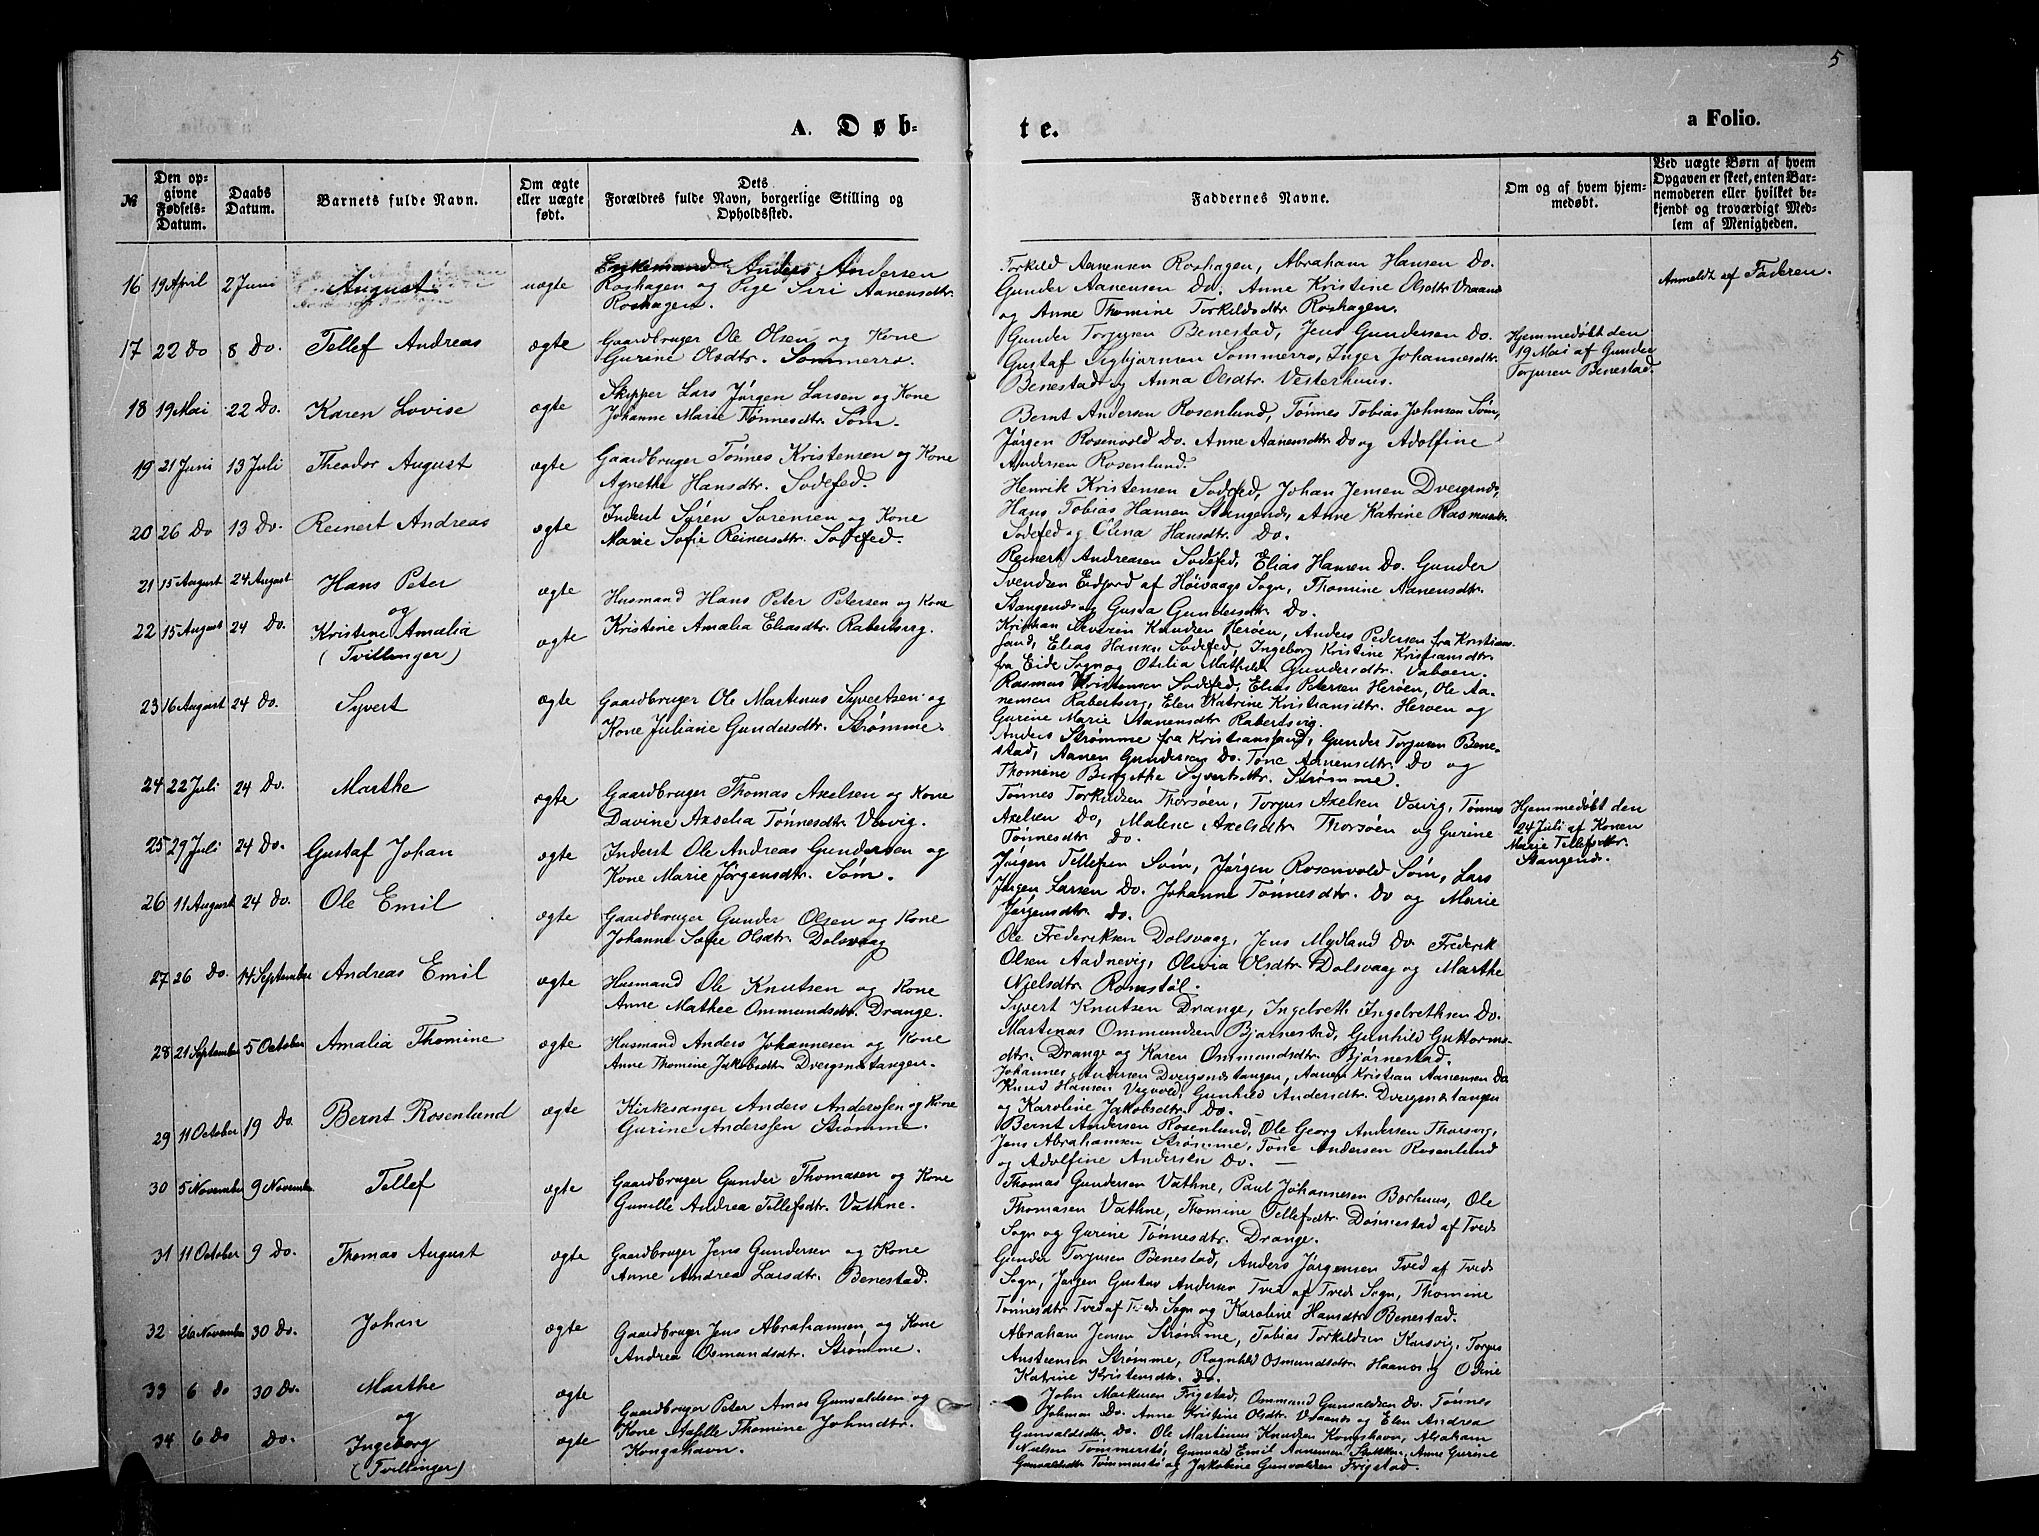 5
A. Døb-
te.
a Folio.
№
Den op-
givne
Fødsels-
Datum.
Daabs
Datum.
Barnets fulde Navn.
Om ægte
eller uægte
født.
Dets
Forældres fulde Navn, borgerlige Stilling og
Opholdssted.
Faddernes Navne.
Om og af hvem hjem-
medøbt.
Ved uægte Børn af hvem
Opgaven er skeet, enten Bar-
nemoderen eller hvilket be-
kjendt og troværdigt Med-
lem af Menigheden.
16 19 April 2 Juni August uægte
Enkemand Anders Andersen
Roshagen og Pige Siri Aanensdtr.
Roshagen.
Torkild Aanensen Roshagen, Abraham Hansen Do.
Gunder Aanensen Do. Anne Kristine Olsdtr. Vraanes
og Anne Thomine Torkildsdtr. Roshagen.
Anmeldt af Faderen.
17 22 Do 8 Do. Tellef Andreas ægte
Gaardbruger Ole Olsen og Kone
Gurine Olsdtr. Sommerro.
Gunder Torjusen Benestad, Jens Gundersen Do.
Gustaf Sigbjørnsen Sommerro, Inger Johannesdtr.
Benestad og Anna Olsdtr. Vesterhuus.
Hjemmedøbt den
19 Mai af Gunder
Torjusen Benestad.
18 19 Mai 22 Do. Karen Lovise ægte
Skipper Lars Jørgen Larsen og Kone
Johanne Marie Tønnesdtr. Søm.
Bernt Andersen Rosenlund, Tønnes Tobias Johnsen Søm,
Jørgen Rosenvold Do. Anne Aanensdtr. Do og Adolfine
Andersen Rosenlund.
19 21 Juni 13 Juli Theodor August ægte
Gaardbruger Tønnes Kristensen og Kone
Agnethe Hansdtr. Sodefed.
Henrik Kristensen Sodefed, Johan Jensen Dvergsnes,
Hans Tobias Hansen Stangenes, Anne Katrine Rasmusdtr.
Sodefed og Olena Hansdtr. Do.
20 26 Do 13 Do. Reinert Andreas ægte
Inderst Søren Sørensen og Kone
Marie Sofie Reinersdtr. Sodefed.
Reinert Andreasen Sodefed, Elias Hansen Do. Gunder
Svendsen Eidjord af Høivaags Sogn, Thomine Aanensdtr.
Stangenes og Gusta Gundersdtr. Do.
21 15 August 24 August Hans Peter ægte
og
22 15 August 24 Do. Kristine Amalia ægte
(Tvillinger)
Husmand Hans Peter Petersen og Kone
Kristine Amalia Eliasdtr. Rabertsvig.
Kristian Severin Knudsen Herøen, Anders Pedersen fra Kristian-
sand, Elias Hansen Sodefed, Ingeborg Kristine Kristiansdtr.
fra Eide Sogn og Otelia Mathilde Gundersdtr. Vaboen.
Rasmus Kristensen Sodefed, Elias Petersen Herøen, Ole Aa-
nensen Rabertsvig, Elen Katrine Kristiansdtr. Herøen og
Gurine Marie Aanensdtr. Rabertsvig.
23 16 August 24 Do. Syvert ægte
Gaardbruger Ole Martinus Syvertsen og
Kone Juliane Gundersdtr. Strømme.
Anders Strømme fra Kristianssand, Gunder Torjusen Bene-
stad, Aanen Gundersen Do. Tone Aanensdtr. Do og
Thomine Bergithe Syvertsdtr. Strømme.
24 22 Juli 24 Do. Marthe ægte
Gaardbruger Thomas Axelsen og Kone
Davine Axselia Tønnesdtr. Vorvig.
Tønnes Torkildsen Thorsøen, Torjus Axelsen Vorvig, Tønnes
Axelsen Do, Malene Axelsdtr. Thorsøen og Gurine
Tønnesdtr. Do.
Hjemmedøbt den
24 Juli af Konen
Marie Tellefsdtr.
Stangenes.
25 29 Juli 24 Do. Gustaf Johan ægte
Inderst Ole Andreas Gundersen og
Kone Marie Jørgensdtr. Søm.
Jørgen Tellefsen Søm, Jørgen Rosenvold Søm, Lars
Jørgen Larsen Do. Johanne Tønnesdtr. Do og Marie
Jørgensdtr. Do.
26 11 August 24 Do. Ole Emil ægte
Gaardbruger Gunder Olsen og Kone
Johanne Sofie Olsdtr. Dolsvaag
Ole Frederiksen Dolsvaag, Jens Mydland Do. Frederik
Olsen Aadnevig, Olivia Olsdtr. Dolsvaag og Marthe
Nielsdtr. Romstøl.
27 26 Do. 14 September Andreas Emil ægte
Husmand Ole Knutsen og Kone
Anne Mathee Ommundsdtr. Drange.
Syvert Knutsen Drange, Ingelreth Ingelrethsen Do.
Martinus Ommundsen Bjørnestad, Gunhild Guttorms-
dtr. Drange og Karen Ommundsdtr. Bjørnestad.
28 21 September 5 October Amalia Thomine ægte
Husmand Anders Johannesen og Kone
Anne Thomine Jakobsdtr. Dvergsnestangen.
Johannes Andersen Dvergsnestangen, Aanen Kristian Aanensen Do.
Knud Hansen Vigvold, Gunhild Andersdtr. Dvergsnestangen
og Karoline Jakobsdtr. Do.
29 11 October 19 Do. Bernt Rosenlund ægte
Kirkesanger Anders Anderssen og Kone
Gurine Anderssen Strømme.
Bernt Andersen Rosenlund, Ole Georg Andersen Thorsvig,
Jens Abrahamsen Strømme, Tone Andersen Rosenlund
og Adolfine Andersen Do.
30 5 November 9 November Tellef ægte
Gaardbruger Gunder Thomasen og Kone
Gunille Andrea Tellefsdtr. Vathne.
Thomas Gundersen Vathne, Paul Johannesen Borhuus, Ole
Thomasen Vathne, Thomine Tellefsdtr. Dønnestad af Tveds
Sogn og Gurine Tønnesdtr. Drange.
31 11 October 9 Do. Thomas August ægte
Gaardbruger Jens Gundersen og Kone
Anne Andrea Larsdtr. Benestad.
Gunder Torjusen Benestad, Anders Jørgensen Tved af Tveds
Sogn, Jørgen Gustav Andersen Tved af Tveds Sogn, Thomine
Tønnesdtr. Tved af Tveds Sogn og Karoline Hansdtr. Benestad.
32 26 November 30 Do. Johan ægte
Gaardbruger Jens Abrahamsen og Kone
Andrea Osmundsdtr. Strømme.
Abraham Jensen Strømme, Tobias Torkildsen Korsvig, Torjus
Austensen Strømme, Ragnhild Osmundsdtr. Haanes og Oline
Katrine Kristensdtr. Do.
33 6 Do 30 Do. Marthe ægte
og
34 6 Do Do. Ingeborg ægte
(Tvillinger)
Gaardbruger Peter Amos Gunvaldsen og
Kone Thomine Johnsdtr.
Kongshavn.
John Markusen Frigstad, Ommund Gunvaldsen Do. Tønnes
Johnsen Do. Anne Kristine Olsdtr. Vraanes og Elen Andrea
Gunvaldsdtr. Do. Ole Martinus Knudsen Kongshavn, Abraham
Nielsen Tømmerstø, Gunvald Emil Aanensen Anne Gurine
Gunvaldsdtr. Tømmerstø og Jakobine Gunvaldsen Frigstad.